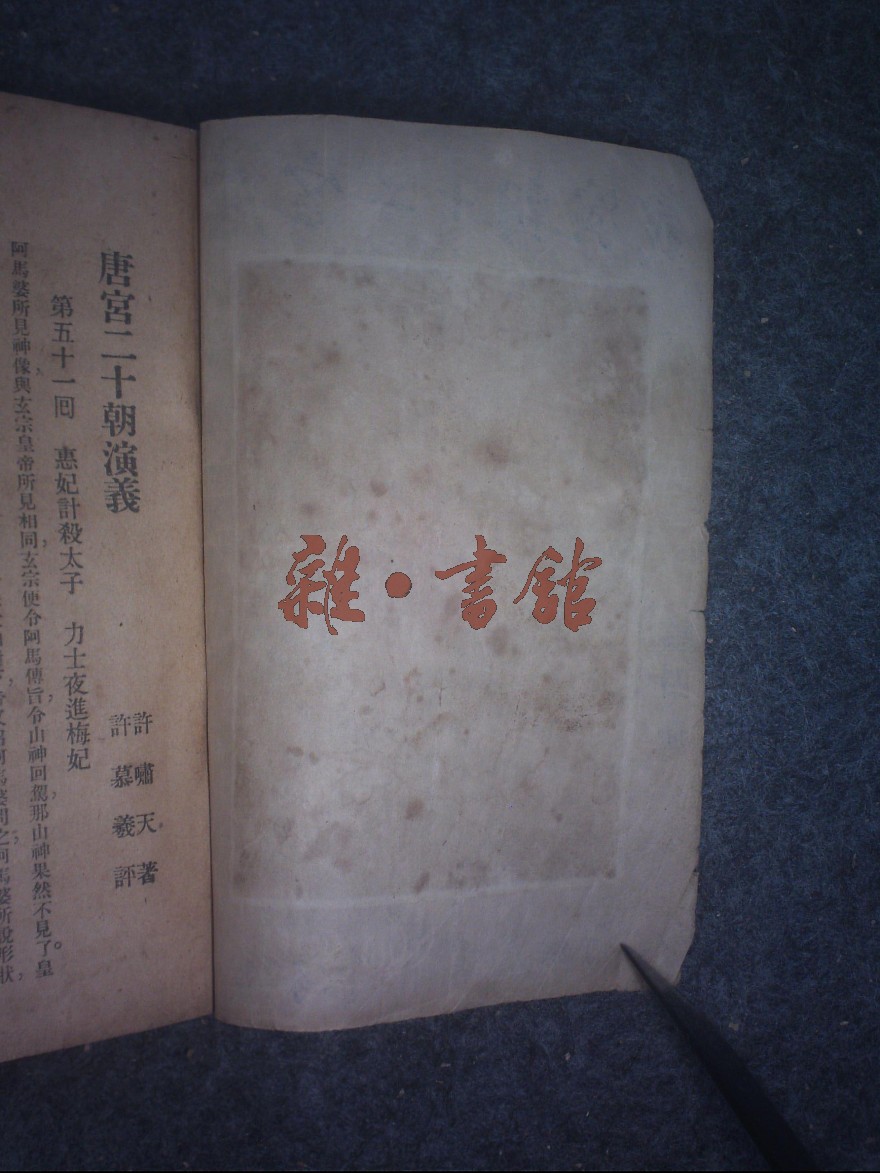 唐宮二十朝演義
許嘯天著
許慕羲評
第五十一囘　惠妃計殺太子　力士夜進梅妃
阿馬婆所見神像，與玄宗皇帝所見相同，玄宗便令阿馬傳旨，令山神回駕，那山神果然不見了。皇
阿馬婆所說形狀，
雜·書館